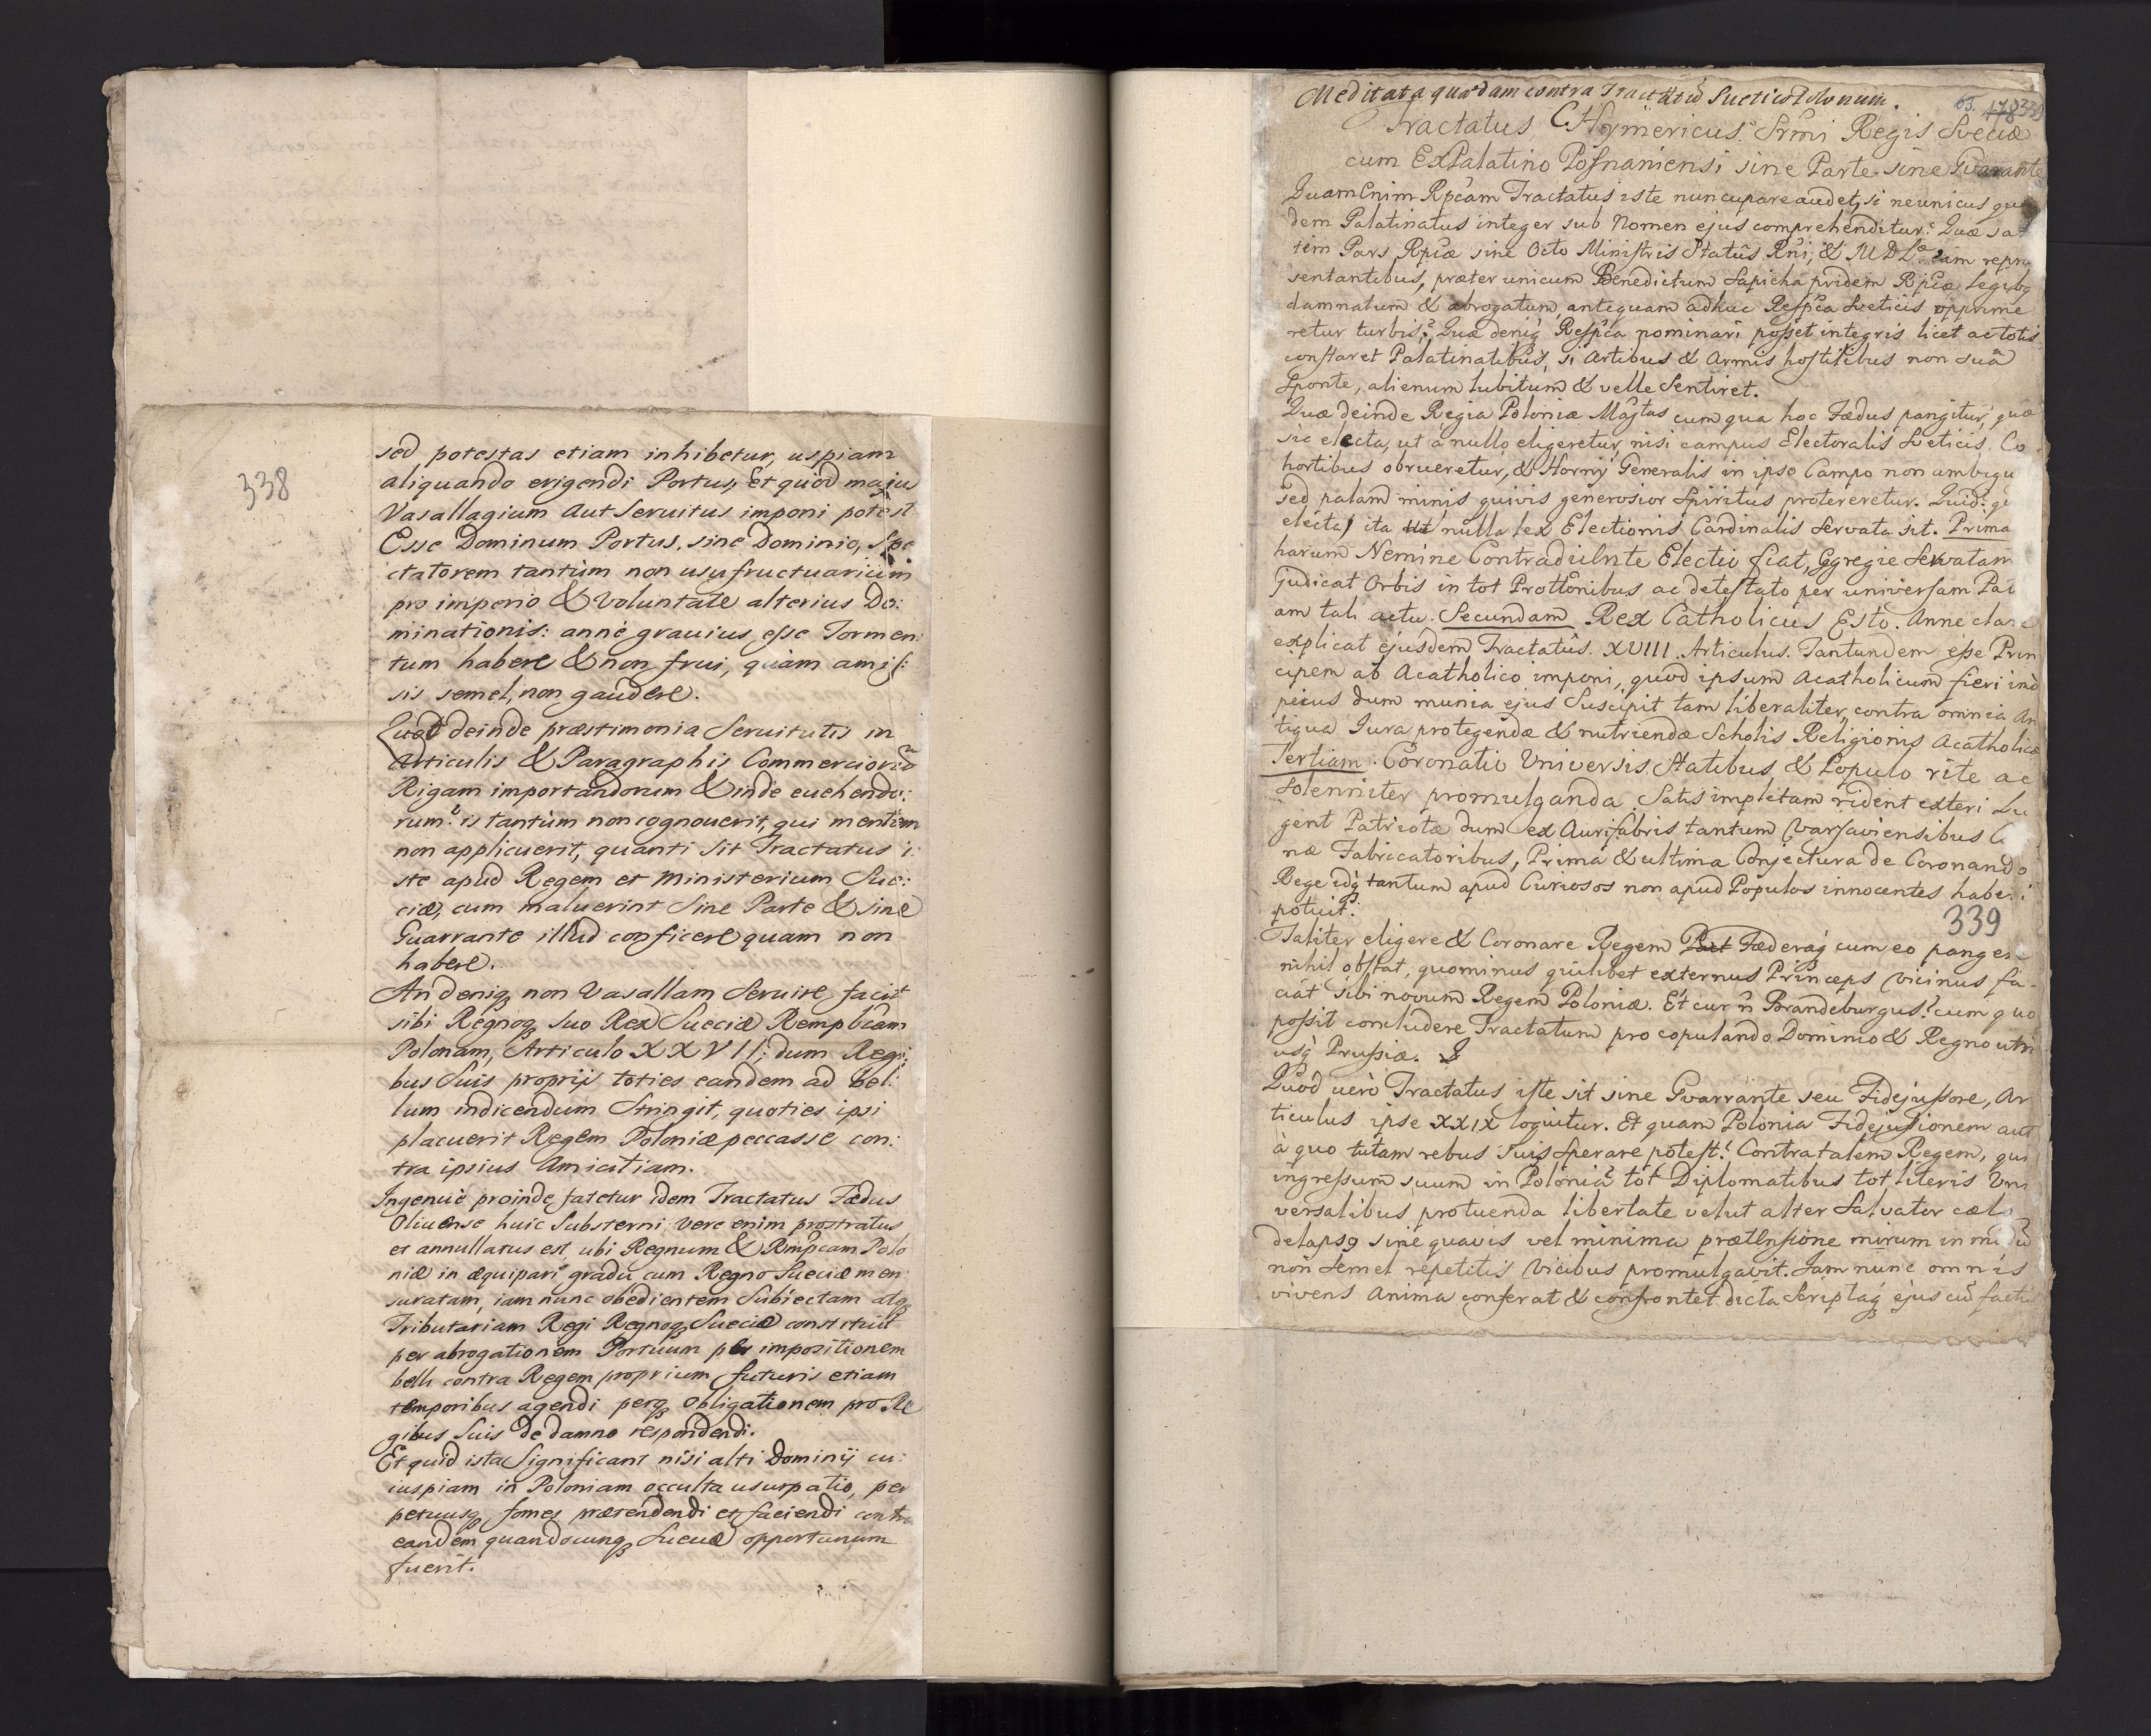 338
sed potestas etiam inhibetur, uspiam
aliquando erigendi Portus, Et quod majus
Vasallagium aut Seruitus imponi potest
Esse Dominum Portus, sine Dominio, Spe
ctatorem tantum non usufructuarium
pro imperio & voluntate alterius Do:
minationis: anne grauius esse Tormen:
tum habere & non frui, quàm amis:
sis semel, non gaudere.
Quot deinde præstimonia Seruitutis in
Articulis & Paragraphis Commerciorũ
Rigam importandorum & inde euehendo:
rum? is tantùm non cognouerit, qui mentem
non applicuerit, quanti sit Tractatus i:
ste apud Regem et Ministerium Sue:
ciæ, cum maluerint sine Parte & sine
Guarrante illud conficere quam non
habere.
An deniq non Vasallam Seruire facit
sibi Regnoq suo Rex Sueciæ Rempbcam
Polonam, Articulo XXVII; dum Regi:
bus Suis proprijs toties eandem ad bel:
lum indicendum Stringit, quoties ipsi
placuerit Regem Poloniæ peccasse con:
tra ipsius Amicitiam.
Ingenuè proinde fatetur idem Tractatus Fædus
Oliuense huic Substerni, vere enim prostratus
et annullatus est, ubi Regnum & Rmpcam Polo
niæ in æquipari gradu cum Regno Sueciæ men
suratam, iam nunc obedientem Subiectam atq
Tributariam Regi Regnoq Sueciæ constituit
per abrogationem Portuum per impositionem
belli contra Regem proprium futuris etiam
temporibus agendi perq obligationem pro Re
gibus Suis de damno respondendi.
Et quid ista Significant nisi alti Dominij cu:
iuspiam in Poloniam occulta usurpatio, per
petuusq fomes prætendendi et faciendi contra
eandem quandocunq Sueciæ opportunum
fuerit.
Meditata quædam contra Tractatũ Suetico Polonum.
63. 178
Tractatus CHymericus Srmi Regis Sveciæ
cum ExPalatino Posnaniensi sine Parte sine Gvarante
Quam Enim Rpcam Tractatus iste nuncupare audet, si ne unicus qui
dem Palatinatus integer sub Nomen ejus comprehenditur? Quæ sal
tem Pars Rpcæ sine Octo Ministris Statûs Rni, & MDL. eam repræ
sentantibus, præter unicum Benedictum Sapieha pridem Rpcæ Legibq
damnatum & abrogatum, antequam adhuc Respca Sveticis opprime
retur turbis? Quæ deniq Respca nominari posset integris licet ac totis
constaret Palatinatibus, si Artibus & Armis hostilibus non suâ
Sponte, alienum lubitum & velle Sentiret.
Quæ deinde Regia Poloniæ Majtas cum qua hoc Fædus pangitur, quæ
sic electa, ut à nullo eligeretur, nisi campus Electoralis Sveticis Co
hortibus obrueretur, & Hornij Generalis in ipso Campo non ambigu
sed palam minis quivis generosior Spiritus protereretur. Quid:
electa, ita ut nulla lex Electionis Cardinalis Servata sit. Prima
harum Nemine Contradicente Electio fiat, Egregie Servatam
Judicat Orbis in tot Prottonibus ac detestato per universam
am tali actu. Secundam Rex Catholicus Esto. Anne clare
explicat ejusdem Tractatûs XVIII. Articulus. Tantundem esse Prin
cipem ab Acatholico imponi, quod ipsum Acatholicum fieri imò
peius dum munia ejus Suscipit tam liberaliter, contra omnia An
tiqua Jura protegendæ & nutriendæ Scholis Religionis Acatholicæ
Tertiam. Coronatio Universis Statibus & Populo rite ac
solenniter promulganda. Satis impletam rident exteri Lu
gent Patriotæ dum ex Aurifabris tantum Varsaviensibus
næ Fabricatoribus, Prima & ultima Conjectura de Coronando
Rege idq tantum apud Curiosos non apud Populos innocentes haberi
potuit.
339
Taliter eligere & Coronare Regem Pact Fæderaq cum eo pangere
nihil obstat, quominus quilibet externus Princeps Vicinus fa-
ciat sibi novum Regem Poloniæ. Et cur ñ Brandeburgus? cum quo
possit concludere Tractatum pro copulando Dominio & Regno utri
usq Prussiæ.
Quod verò Tractatus iste sit sine Gvarrante seu Fidejussore, Ar
ticulus ipse XXIX loquitur. Et quam Polonia Fidejussionem aut
à quo tutam rebus suis sperare potest! Contra talem Regem, qui
ingressum suum in Poloniã tot Diplomatibus tot literis Uni
versalibus pro tuenda libertate velut alter Salvator cælo
delapsq sine quavis vel minima prætensione mirum in modũ
non semel repetitis Vicibus promulgavit. Jam nunc omnis
vivens Anima conferat & confrontet dicta Scriptaq ejus cũ factis